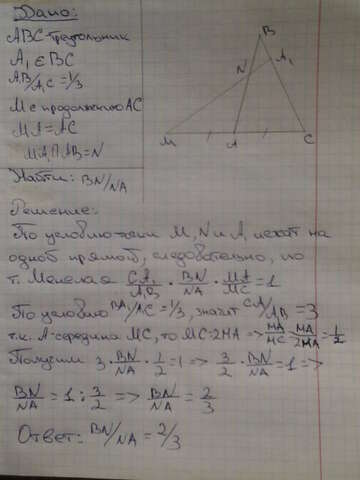 Дано:
ABC-треугольник
A₁ ∈ BC
A₁B/A₁C = 1/3
M ∈ продолжению AC
MA = AC
MA₁ ∩ AB = N
Найти: BN/NA
B
N
A₁
M
A
C
Решение:
По условию точки M, N и A₁ лежат на
одной прямой, следовательно, по
т. Менелая CA₁/A₁B · BN/NA · MA/MC = 1
По условию BA₁/A₁C = 1/3, значит CA₁/A₁B = 3
т.к. A-середина MC, то MC=2MA => MA/MC = MA/2MA = 1/2
Получим 3 · BN/NA · 1/2 = 1 => 3/2 · BN/NA = 1 =>
BN/NA = 1 : 3/2 => BN/NA = 2/3
Ответ: BN/NA = 2/3